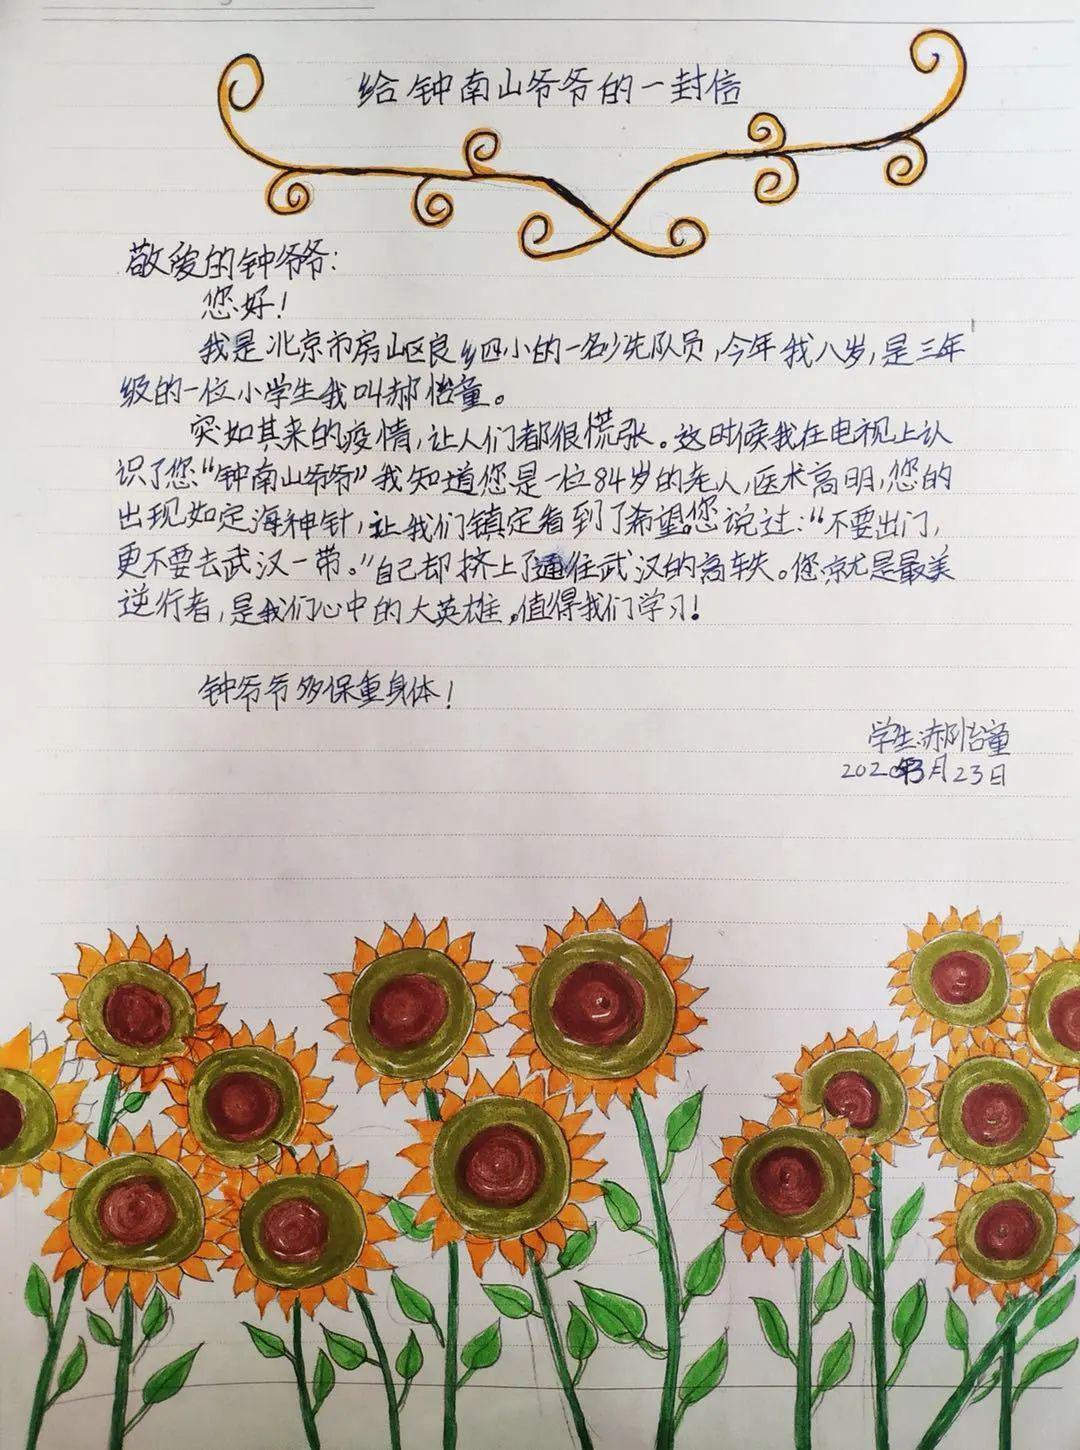 给钟南山爷爷的一封信
敬爱的钟爷爷:
您好!
我是北京市房山区良乡四小的一名少先队员,今年我八岁,是三年
级的一位小学生我叫郝怡童。
突如其来的疫情,让人们都很慌张。这时候我在电视上认
识了您“钟南山爷爷”我知道您是一位84岁的老人,医术高明,您的
出现如定海神针,让我们镇定看到了希望。您说过:“不要出门,
更不要去武汉一带。”自己却挤上了通往武汉的高铁。您就是最美
逆行者,是我们心中的大英雄。值得我们学习!
钟爷爷多保重身体!
学生:郝怡童
2020年3月23日